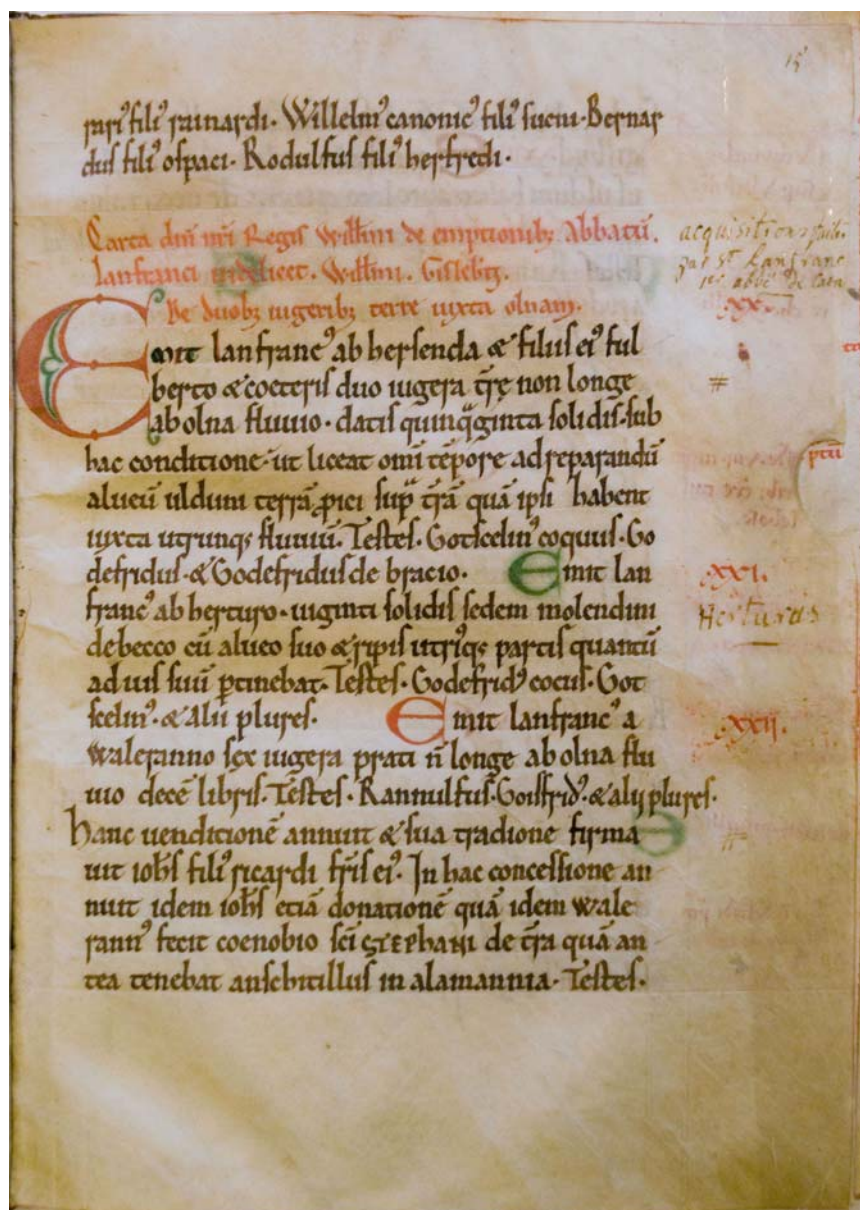 15
rari' fili' rainardi. Willelm' canonic' fili' sueni. Bernar
dus fili' ospaci. Rodulfus fili' herfredi.
Carta dni nri Regis Willmi de emptionib; Abbatū.
lanfranci videlicet. Willmi. Gisleb̄ti.
De duob; iugerib; terre iuxta olnam.
Emit lanfranc' ab hersenda & filiis ei' ful
berto & coeteris duo iugera tr̄ę non longe
ab olna fluuio. datis quinq̄ginta solidis. sub
hac conditione. ut liceat omī tēpore ad reparandū
alueū uldum terrā ꝓici sup̄ tr̄ā quā ipsi habent
iuxta utrunq; fluuiū. Testes. Gotscelin' coquus. Go
defridus. & Godefridus de bracio. Emit lan
franc' ab herturo. uiginti solidis sedem molendini
de becco cū alueo suo & ripis utri'q; partis quantū
ad uis suū ꝑtinebat. Testes. Godefrid' cocus. Got
scelin'. & Alii plures. Emit lanfranc' a
waleranno sex iugera prati n̄ longe ab olna flu
uio decē libris. Testes. Rannulfus. Goisfrid'. & alij plures.
Hanc uenditionē annuit & sua tradione firma
uit iohs fili' ricardi fr̄is ei'. In hac concessione an
nuit idem iohs etiā donationē quā idem wale
rann' fecit coenobio sci STEPHANI de tr̄a quā an
tea tenebat anschitillus in alamannia. Testes.
acquisitions
par St Lanfranc
abbé de Caen
.xx.
ptū
.xxi.
Herturus
.xxii.